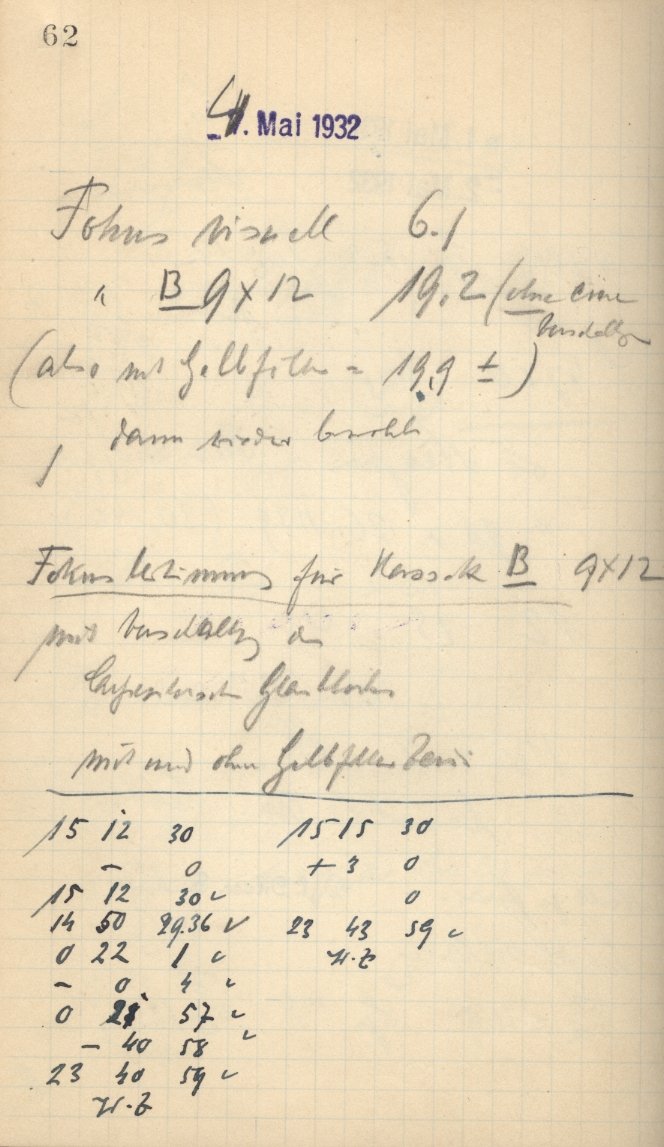 62
4. Mai 1932
Fokus visuell 6.1
" B 9x12 19,2 (ohne eine
(also mit Gelbfilter = 19,9 ±)
dann wieder
Fokusbestimmung für Kassette B 9x12
mit
Glasblockes
mit und ohne Gelbfilter Zeiss
15 12 30 15 15 30
- 0 + 3 0
15 12 30 ✓ 0
14 50 29.36 ✓ 23 43 59 ✓
0 22 1 ✓
- 0 4 ✓
0 21 57 ✓
- 40 58 ✓
23 40 59 ✓